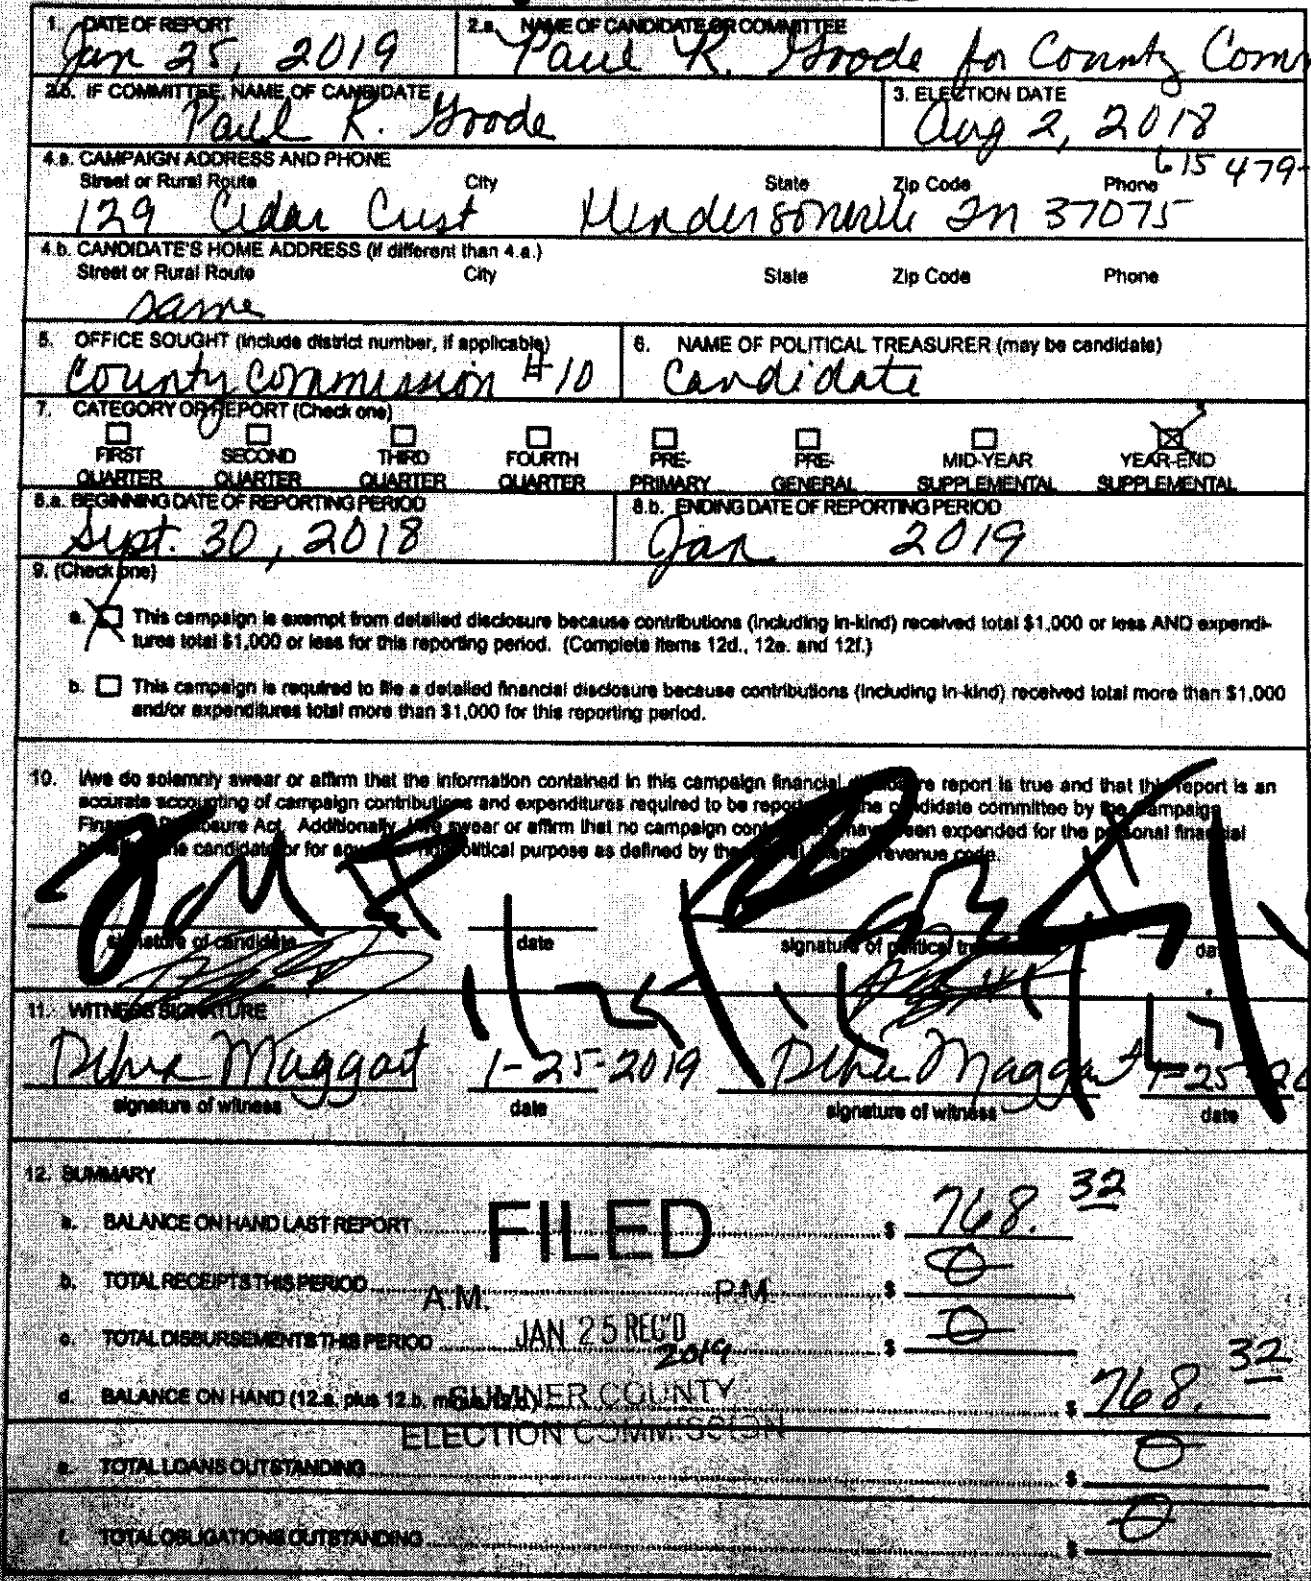 1. DATE OF REPORT
Jan 25, 2019
2.a. NAME OF CANDIDATE OR COMMITTEE
Paul R. Goode for County Comm
2.b. IF COMMITTEE, NAME OF CANDIDATE
Paul R. Goode
3. ELECTION DATE
Aug 2, 2018
4.a. CAMPAIGN ADDRESS AND PHONE
615 479-
Street or Rural Route City State Zip Code Phone
129 Cedar Crest Hendersonville Tn 37075
4.b. CANDIDATE'S HOME ADDRESS (if different than 4.a.)
Street or Rural Route City State Zip Code Phone
same
5. OFFICE SOUGHT (include district number, if applicable)
County Commission #10
6. NAME OF POLITICAL TREASURER (may be candidate)
Candidate
7. CATEGORY OF REPORT (Check one)
FIRST QUARTER
SECOND QUARTER
THIRD QUARTER
FOURTH QUARTER
PRE-PRIMARY
PRE-GENERAL
MID-YEAR SUPPLEMENTAL
YEAR-END SUPPLEMENTAL
8.a. BEGINNING DATE OF REPORTING PERIOD
Sept. 30, 2018
8.b. ENDING DATE OF REPORTING PERIOD
Jan 2019
9. (Check one)
a. This campaign is exempt from detailed disclosure because contributions (including in-kind) received total $1,000 or less AND expendi-
tures total $1,000 or less for this reporting period. (Complete items 12d., 12e. and 12f.)
b. This campaign is required to file a detailed financial disclosure because contributions (including in-kind) received total more than $1,000
and/or expenditures total more than $1,000 for this reporting period.
10. I/we do solemnly swear or affirm that the information contained in this campaign financial report is true and that this report is an
accurate accounting of campaign contributions and expenditures required to be candidate committee by the Campaign
Act. Additionally, swear or affirm that no campaign been expended for the personal financial
candidate or for political purpose as defined by the revenue code.
signature of candidate date signature of political date
11. WITNESS SIGNATURE
Debra Maggart 1-25-2019 Debra Maggart 1-25-20
signature of witness date signature of witness date
12. SUMMARY
a. BALANCE ON HAND LAST REPORT $ 768.32
FILED
b. TOTAL RECEIPTS THIS PERIOD $ 0
A.M. P.M.
c. TOTAL DISBURSEMENTS THIS PERIOD $ 0
JAN 25 REC'D
2019
d. BALANCE ON HAND (12.a. plus 12.b. $ 768.32
SUMNER COUNTY
ELECTION COMMISSION
e. TOTAL LOANS OUTSTANDING $ 0
f. TOTAL OBLIGATIONS OUTSTANDING $ 0